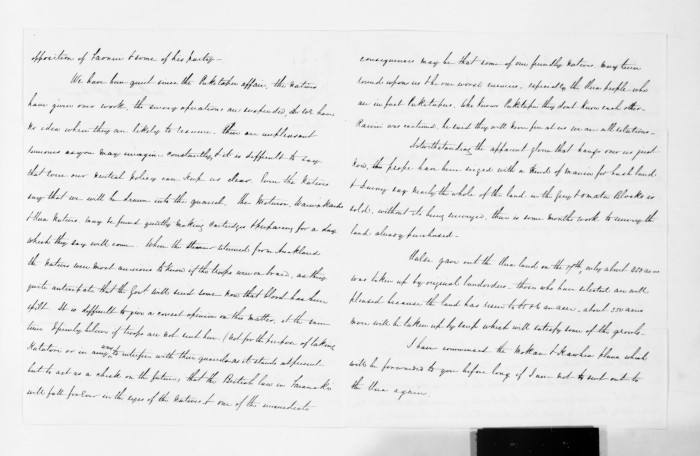 opposition of Ihaia & some of his party -
We have been quiet since the Puketapu affair, the natives
have given over work, the survey operations are suspended, & we have
no idea when they are likely to resume. There are unpleasant
rumours as you may imagine constantly, & it is difficult to say
that even our neutral policy can keep us clear. Even the Natives
say that we will be drawn into the quarrel. The Waitara,
& Hua Natives, may be found quietly making cartridges & preparing for a day
which they say will come. When the Steamer returned from Auckland
the Natives were most anxious to know if the troops were on board, as they
quite anticipate that the Govt will send some now that blood has been
spilt. It is difficult to give a correct opinion on this matter, at the same
time I firmly believe if troops are not sent here, (not for the purpose of taking
Katatore or in any way to interfere with their quarrels as it stands at present
but to act as a check on the future, that the British law in Taranaki
will fall for ever in the eyes of the Natives & one of the immediate
consequences may be that some of our friendly natives may turn
round upon us & be our worst enemies, especially the Hua people who
are in fact Puketapus. Who knows Puketapu they dont know each other
was cautioned, he said they will never fire at us we are all relations -
Notwithstanding the apparent gloom that hangs over us just
now, the people have been seized with a kind of mania for bush land
& I may say nearly the whole of the land in the Grey & Omata Blocks is
sold, without its being surveyed, there is some months work to survey the
land already purchased -
Halse gave out the Hua land on the 17th, only about 250 acres
was taken up by original landorders. those who have selected are well
pleased because the land has risen to an acre. about 350 acres
more will be taken up by scrip which will satisfy some of the grumb-
I have commenced the Mokau & Kawhia plans which
will be forwarded to you before long if I am not sent out to
the Hua again